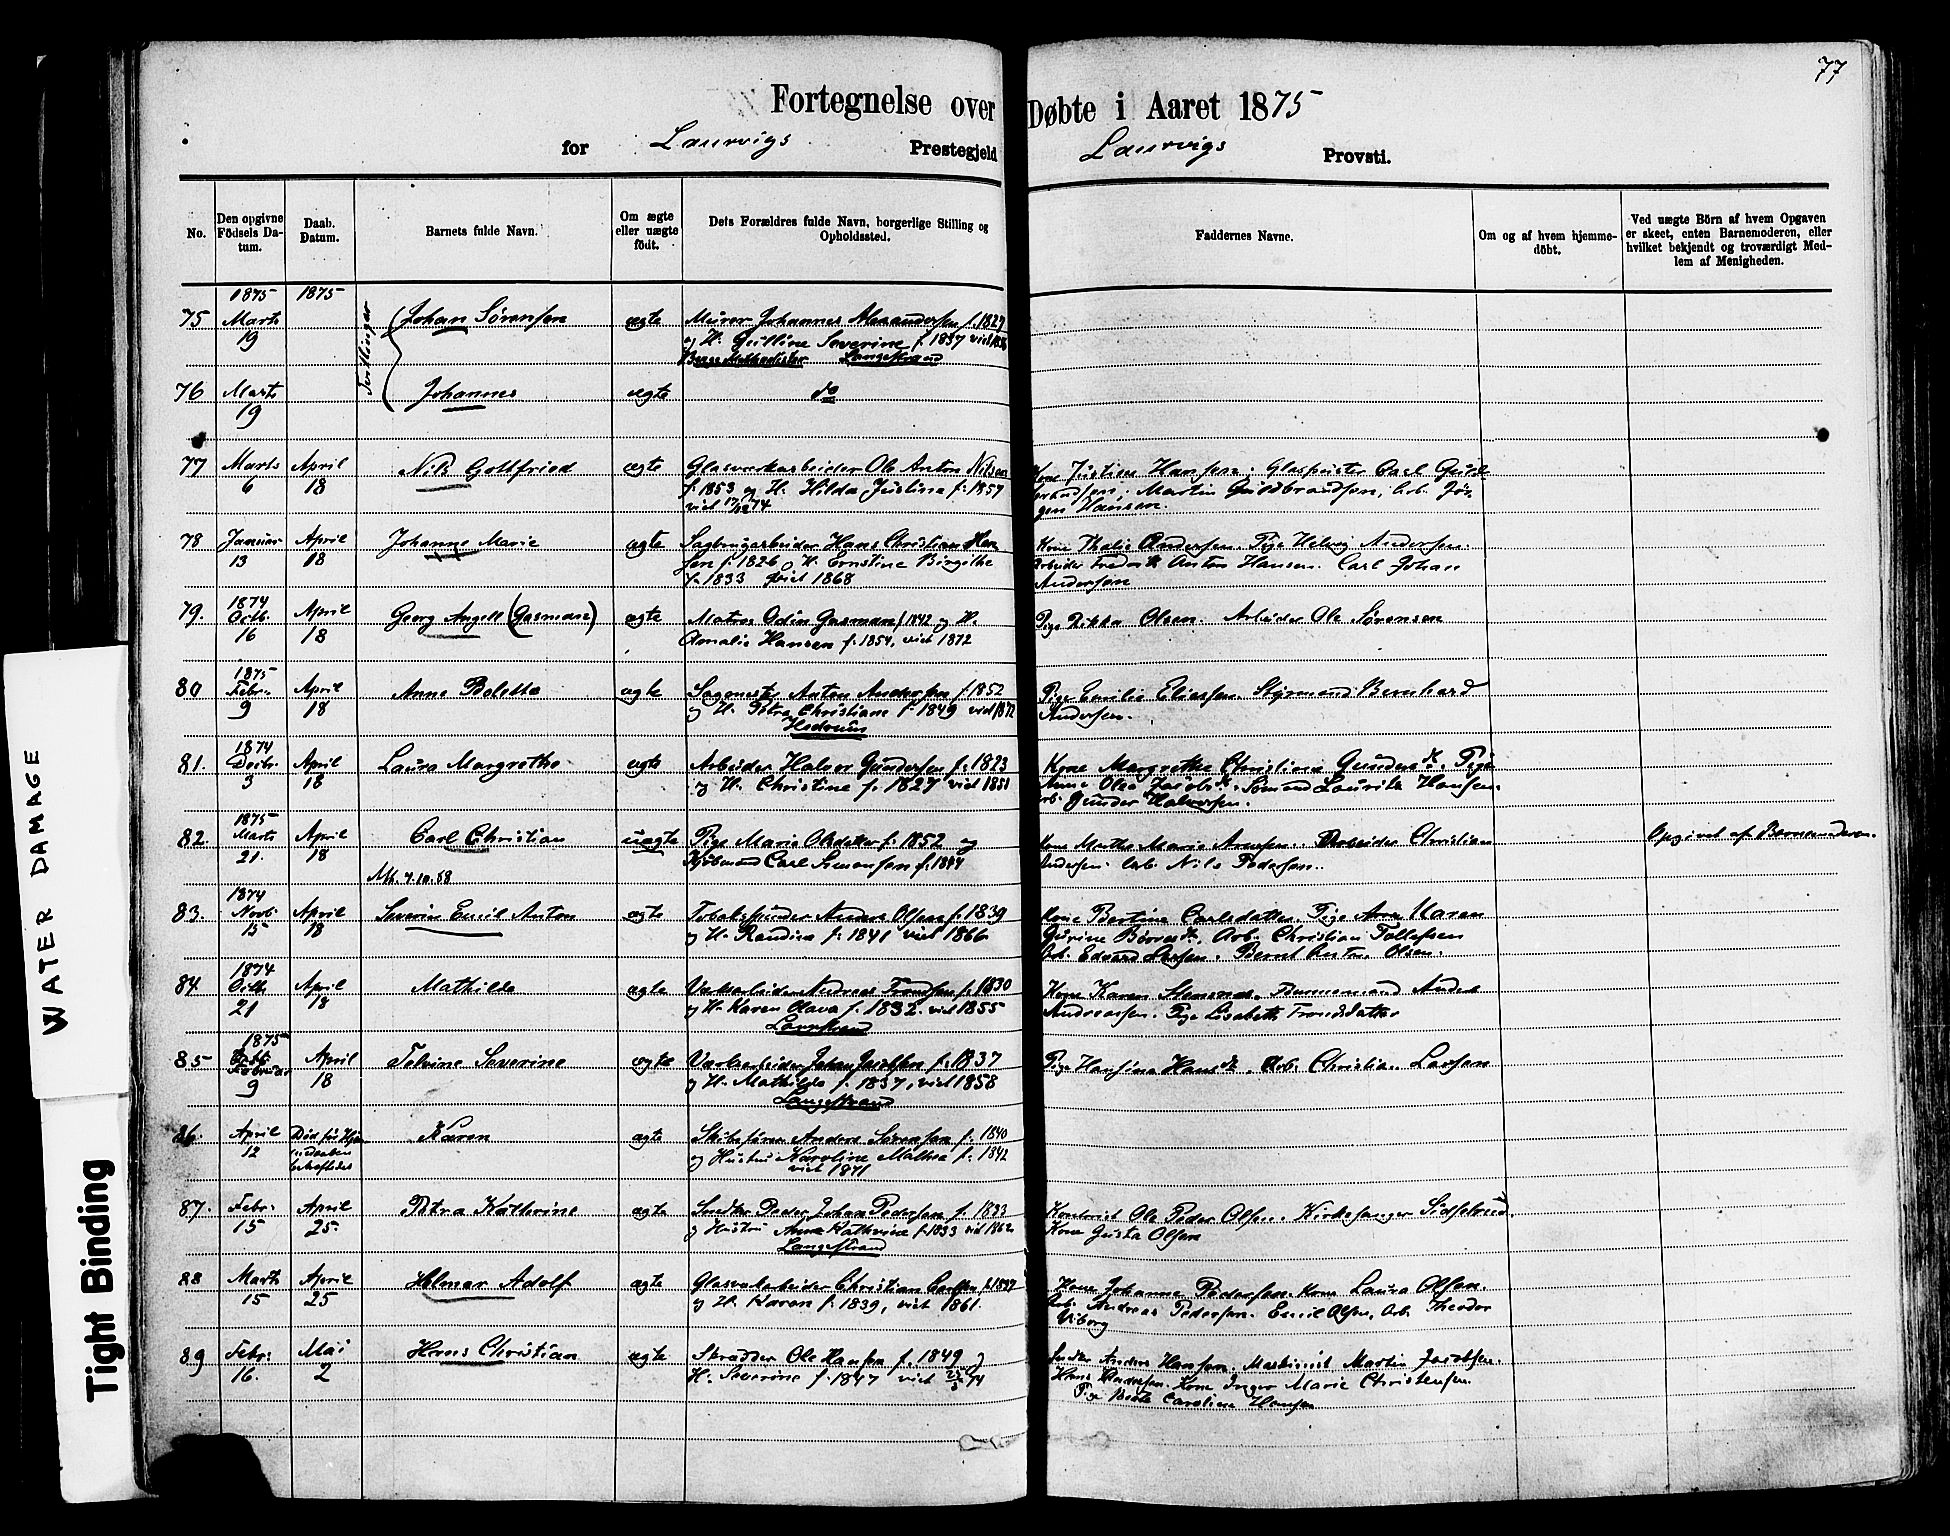 77
Fortegnelse over Døbte i Aaret 1875
for Laurvigs Prestegjeld Laurvigs Provsti.
No.
Den opgivne Födsels Da-tum.
Daab. Datum.
Barnets fulde Navn.
Om ægte eller uægte födt.
Dets Forældres fulde Navn, borgerlige Stilling og Opholdssted.
Faddernes Navne.
Om og af hvem hjemme-döbt.
Ved uægte Börn af hvem Opgaven er skeet, enten Barnemoderen, eller hvilket bekjendt og troværdigt Med-lem af Menigheden.
1875 1875
75 Marts 19 Johan Sörensen ægte Murer Johannes Alexandersen f. 1827
og H. Severine f. 1837 viet
Begge Methodister Langestrand
Tvillinger
76 Marts 19 Johannes ægte do
77 Marts 6 April 18 Nils Gottfried ægte Glasværksarbeider Ole Anton Nilsen
f. 1853 og H. Hilda Justine f. 1857
viet 17/12 74
Kone Justine Hansen. Glaspuster Carl Guld-
brandsen. Martin Guldbrandsen, Arb. Jör-
gen Hansen.
78 Januar 13 April 18 Johanne Marie ægte Sagbrugarbeider Hans Christian Han-
sen f. 1826 og H. Ernstine Birgithe
f. 1833 viet 1868
Kone Thalie Andersen. Pige Helvig Andersen.
Arbeider Fredrik Anton Hansen. Carl Johan
Andersen
79. 1874 Octb. 16 April 18 Georg Angell (Gasman) ægte Matros Odin Gasman f 1842 og H.
Amalie Hansen f. 1854, viet 1872
Pige Rikka Olsen. Arbeider Ole Sörensen
80 1875 Febr. 9 April 18 Anne Bolette ægte Sagmester Anton Andersen f. 1852
og H. Petra Christiane f. 1849 viet 1872
Hedrum
Pige Emilie Eliassen. Styrmand Bernhard
Andersen.
81. 1874 Decbr. 3 April 18 Laura Margrethe ægte Arbeider Halvor Gundersen f. 1823
og H. Christine f. 1827 viet 1851
Kone Margrethe Christine Gundersdt. Pige
Anne Olea Jacobsdt. Sömand Lauritz Hansen.
Arb. Gunder Halvorsen.
82. 1875 Marts 21. April 18 Carl Christian uægte Pige Marie Olsdatter f. 1852 og
Carl Simonsen f. 1844
Att. 4.10.58
Kone Marthe Marie Arnesen. Arbeider Christian
Andersen. Arb. Nils Pedersen.
Opgivet af Barnemoderen.
83. 1874 Novb. 15 April 18 Severin Emil Anton ægte Tobakspinder Olsen f. 1839
og H. Randine f. 1841 viet 1866
Kone Bertine Carlsdatter. Pige Anne Maren
Gurine Arb. Christian Tollefsen
Arb. Edvard Larsen. Bernt Anton Olsen.
84. 1874 Octb 21 April 18 Mathilde ægte Værksarbeider Andreas Trondsen f. 1830
og H. Karen Olava f. 1832. viet 1855
Kone Karen Stenersen. Anders
Andreassen. Pige Lisabeth Trondsdatter
85 1875 Februar 9 April 18 Severine ægte Værksarbeider Johan Jacobsen f. 1837
og H. Mathilde f. 1837, viet 1858
Langestrand
Pige Hansine Hansdt. Arb. Christian Larsen
86. April 12 Död för Hjemmedaaben bekræftedes Karen ægte Skibsförer Anders Sörensen f. 1840
og Hustru Karoline Mathea f. 1842
viet 1871
87. Febr. 15 April 25 Petra Kathrine ægte Snedker Peder Johan Pedersen f. 1823
og Hustru Anne Kathrine f. 1833 viet 1862
Langestrand
Kontorist Ole Peder Olsen. Kirkesanger
Kone Gusta Olsen
88 Marts 15 April 25 Helmer Adolf ægte Glasværkarbeider Christian Carlsen f. 1837
og H. Karen f. 1839, viet 1861.
Kone Johanne Pedersen. Kone Laura Olsen.
Arb. Andreas Pedersen. Emil Olsen. Arb. Theodor
Viborg
89 Febr. 16. Mai 2 Hans Christian ægte Skrædder Ole Hansen f. 1849 og
H. Severine f. 1847 viet 74
Snedker Anders Hansen. Maskinist Martin Jacobsen.
Hans Andersen. Kone Inger Marie Christensen.
Pige Beate Caroline Hansen
WATER DAMAGE
Tight Binding